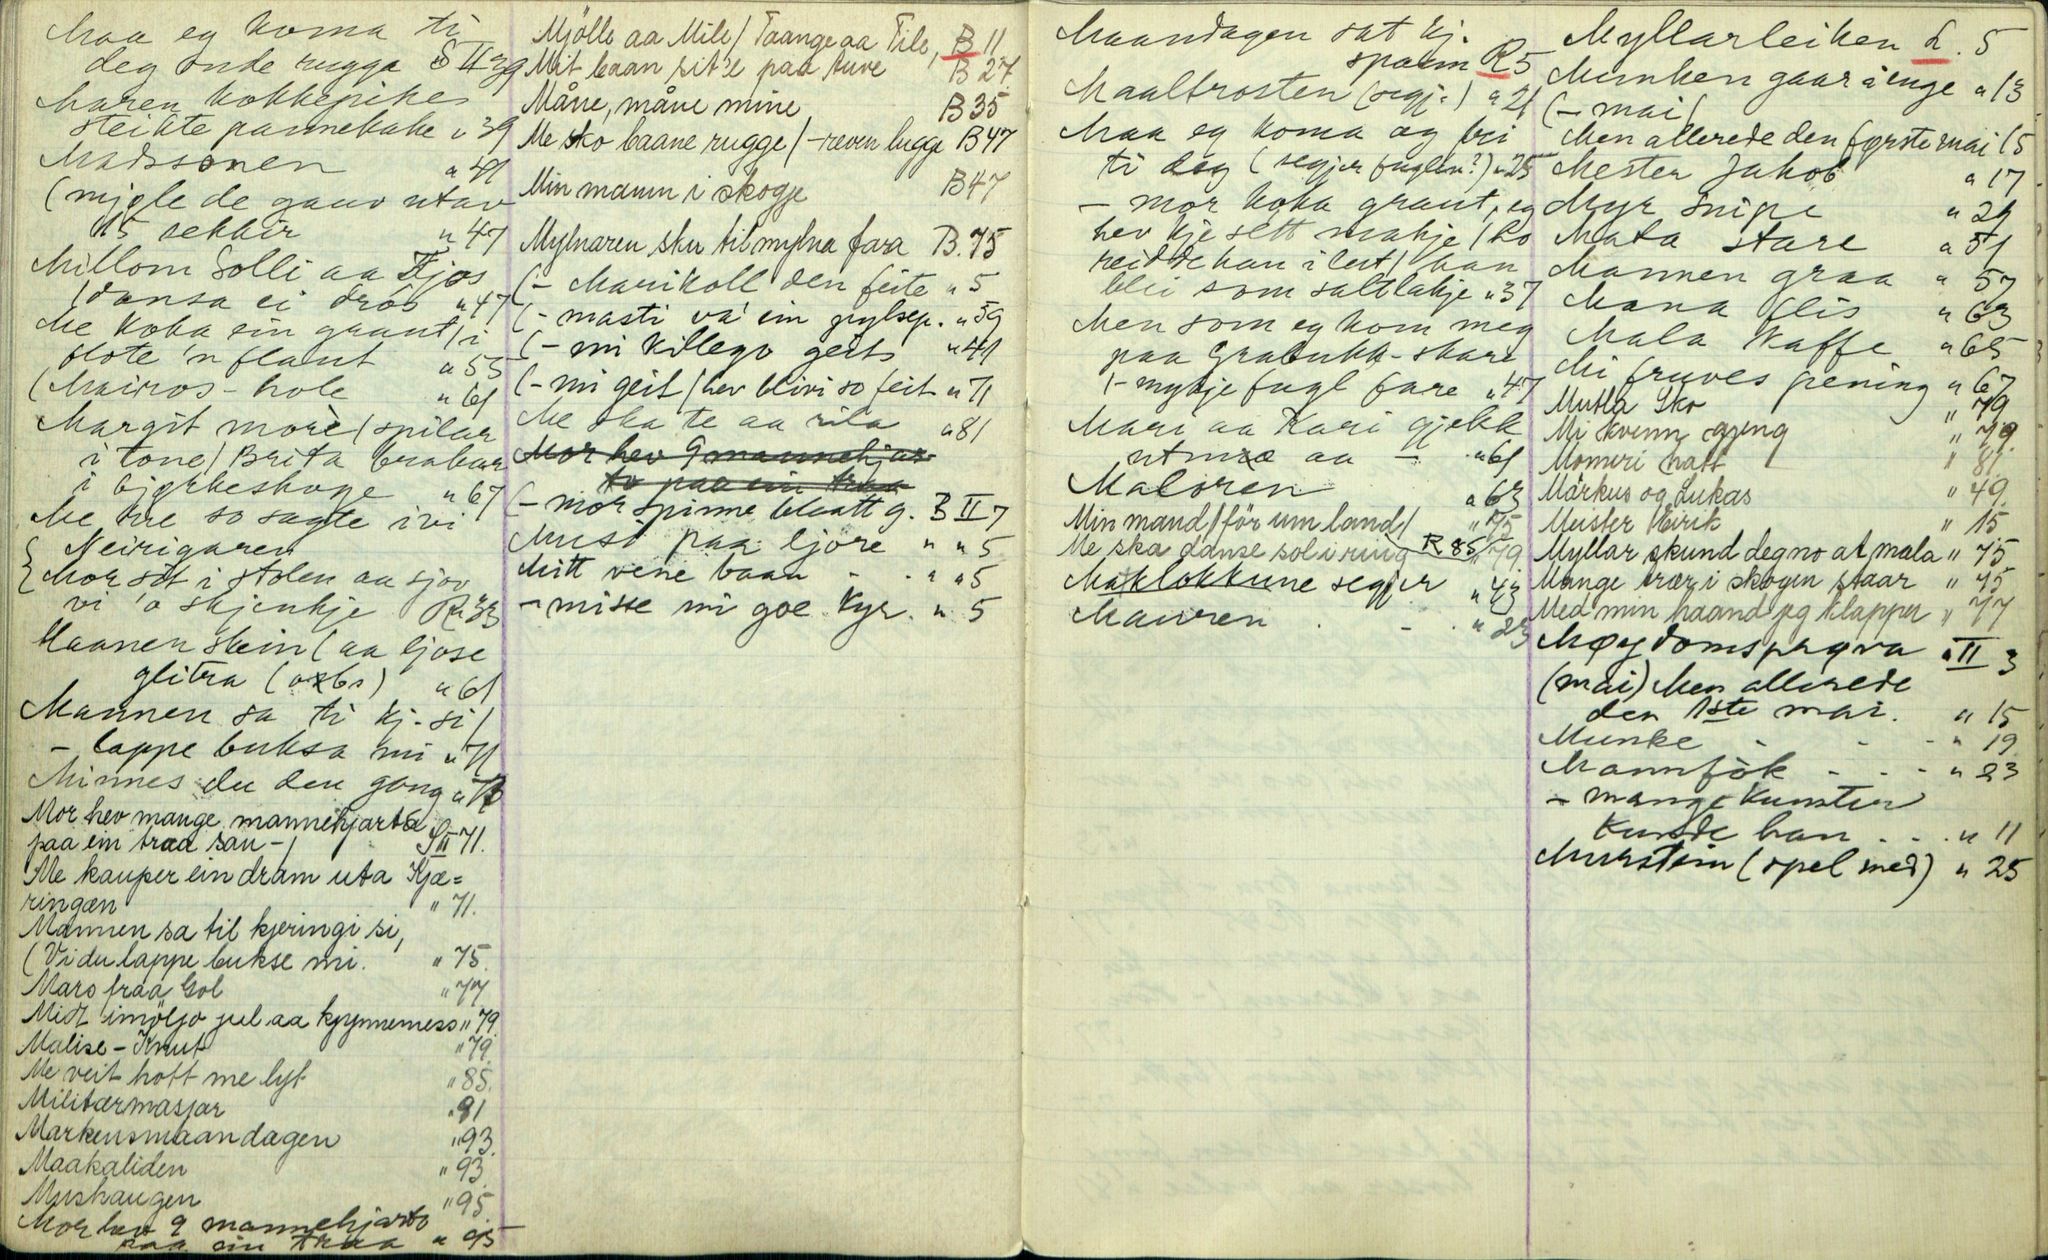 Maa eg koma ti
deg onde rugga S II 29
Maren kokkepikes
steikte pannekake " 39
Madssonen " 41
(mjøle de gauv utav
15 sekkir " 47
Millom Solli aa Fjøs
/dansa ei drós " 47
Me koka ein graut, i
flote 'n flaut " 55
(Mairos-hole " 61
Margit more / spilar
i tone / Brita brabar
i bjørkeskoge " 67
Me roe so sagte ivi
Neirigaren
Mor sit i stolen aa sjov
vi 'o skjenkje R" 33
Maanen skin / aa ljose
glitra " 61
Mannen sa ti kj. si /
- lappe buksa mi " 71
Minnes du den gong "
Mor hev mange mannehjarta
paa ein traa san - / S III 71.
Me kauper ein dram uta Kjæ=
ringæn " 71.
Mannen sa til kjeringi si,
(Vi du lappe bukse mi. " 75.
Maro fraa Gol " 77
Midt imøljo jul aa kjynnemess " 79.
Malise - Knut " 79.
Me veit hott me lyt " 85.
Militærmasjar " 91
Markensmaandagen " 93.
Maakaliden " 93.
Mushaugen " 95.
Mor hev 9 mannehjarto
paa ein traa " 95
Mjölle aa Mile / Taange aa Tile, B 11
Mit baan sit'e paa tuve B 27
Måne, måne mine B 35
Me sko baane rugge / -reven lugge B 47
Min mann i skogje B 47
Mylnaren sku til mylna fara B. 75
(- Marikoll den feite " 5
(- masti va' ein pylsep. " 39
(- mi killegv geits " 41
(- mi geit / hev blivi so feit " 71
Me ska te aa rita " 81
Mor hev 9 mannehjar-
to paa ein traa
(- mor spinne blaatt g. B II 7
Musi paa ljore " " 5
Mitt vene baan - . " " 5
- misse mi goe kyr. " 5
Maandagen sat kj.
spann R 5
Maaltrosten (segje) " 21
Maa eg koma og fri
ti deg (segjer fuglen?) " 25
- mor koka graut, eg
hev kje sett makje / Lo
reidde han i lest / han
blei som saltlakje " 37
Men som eg kom meg
paa Grabukk-skare
/- mykje fugl fare " 47
Mari aa Kari gjekk
utmæ aa - " 61
Maloren " 63
Min mand / för um land / " 75
Me ska danse sol i ring R 85/" 79
Maklokkune segjer " 43
Mauren . - . " 23
Myllarleiken L. 5
Munken gaar i enge " 13
(- mai /
Men allerede den første mai 15
Mester Jakob " 17
Myr Snipe " 29
Mata stare " 51
Mannen graa " 57
Mana flis " 63
Mala Kaffe " 65
Mi fruves pening " 67
Mutla Sko " 79
Mi kvenn gjeng " 79.
Momeri natt " 81
Markus og Lukas " 49.
Meister Eirik " 15
Myllar skund deg no at mala " 75
Mange trær i skogen staar " 45
Med min haand jeg klapper " 77
Møydomsprøva " II 3
(mai) Men allerede
den 1ste mai. " 15
Munke - - - " 19
Mannfók - - - " 23
- mange kunster
kunde han . . . " 11
Murstein (spel med) " 25